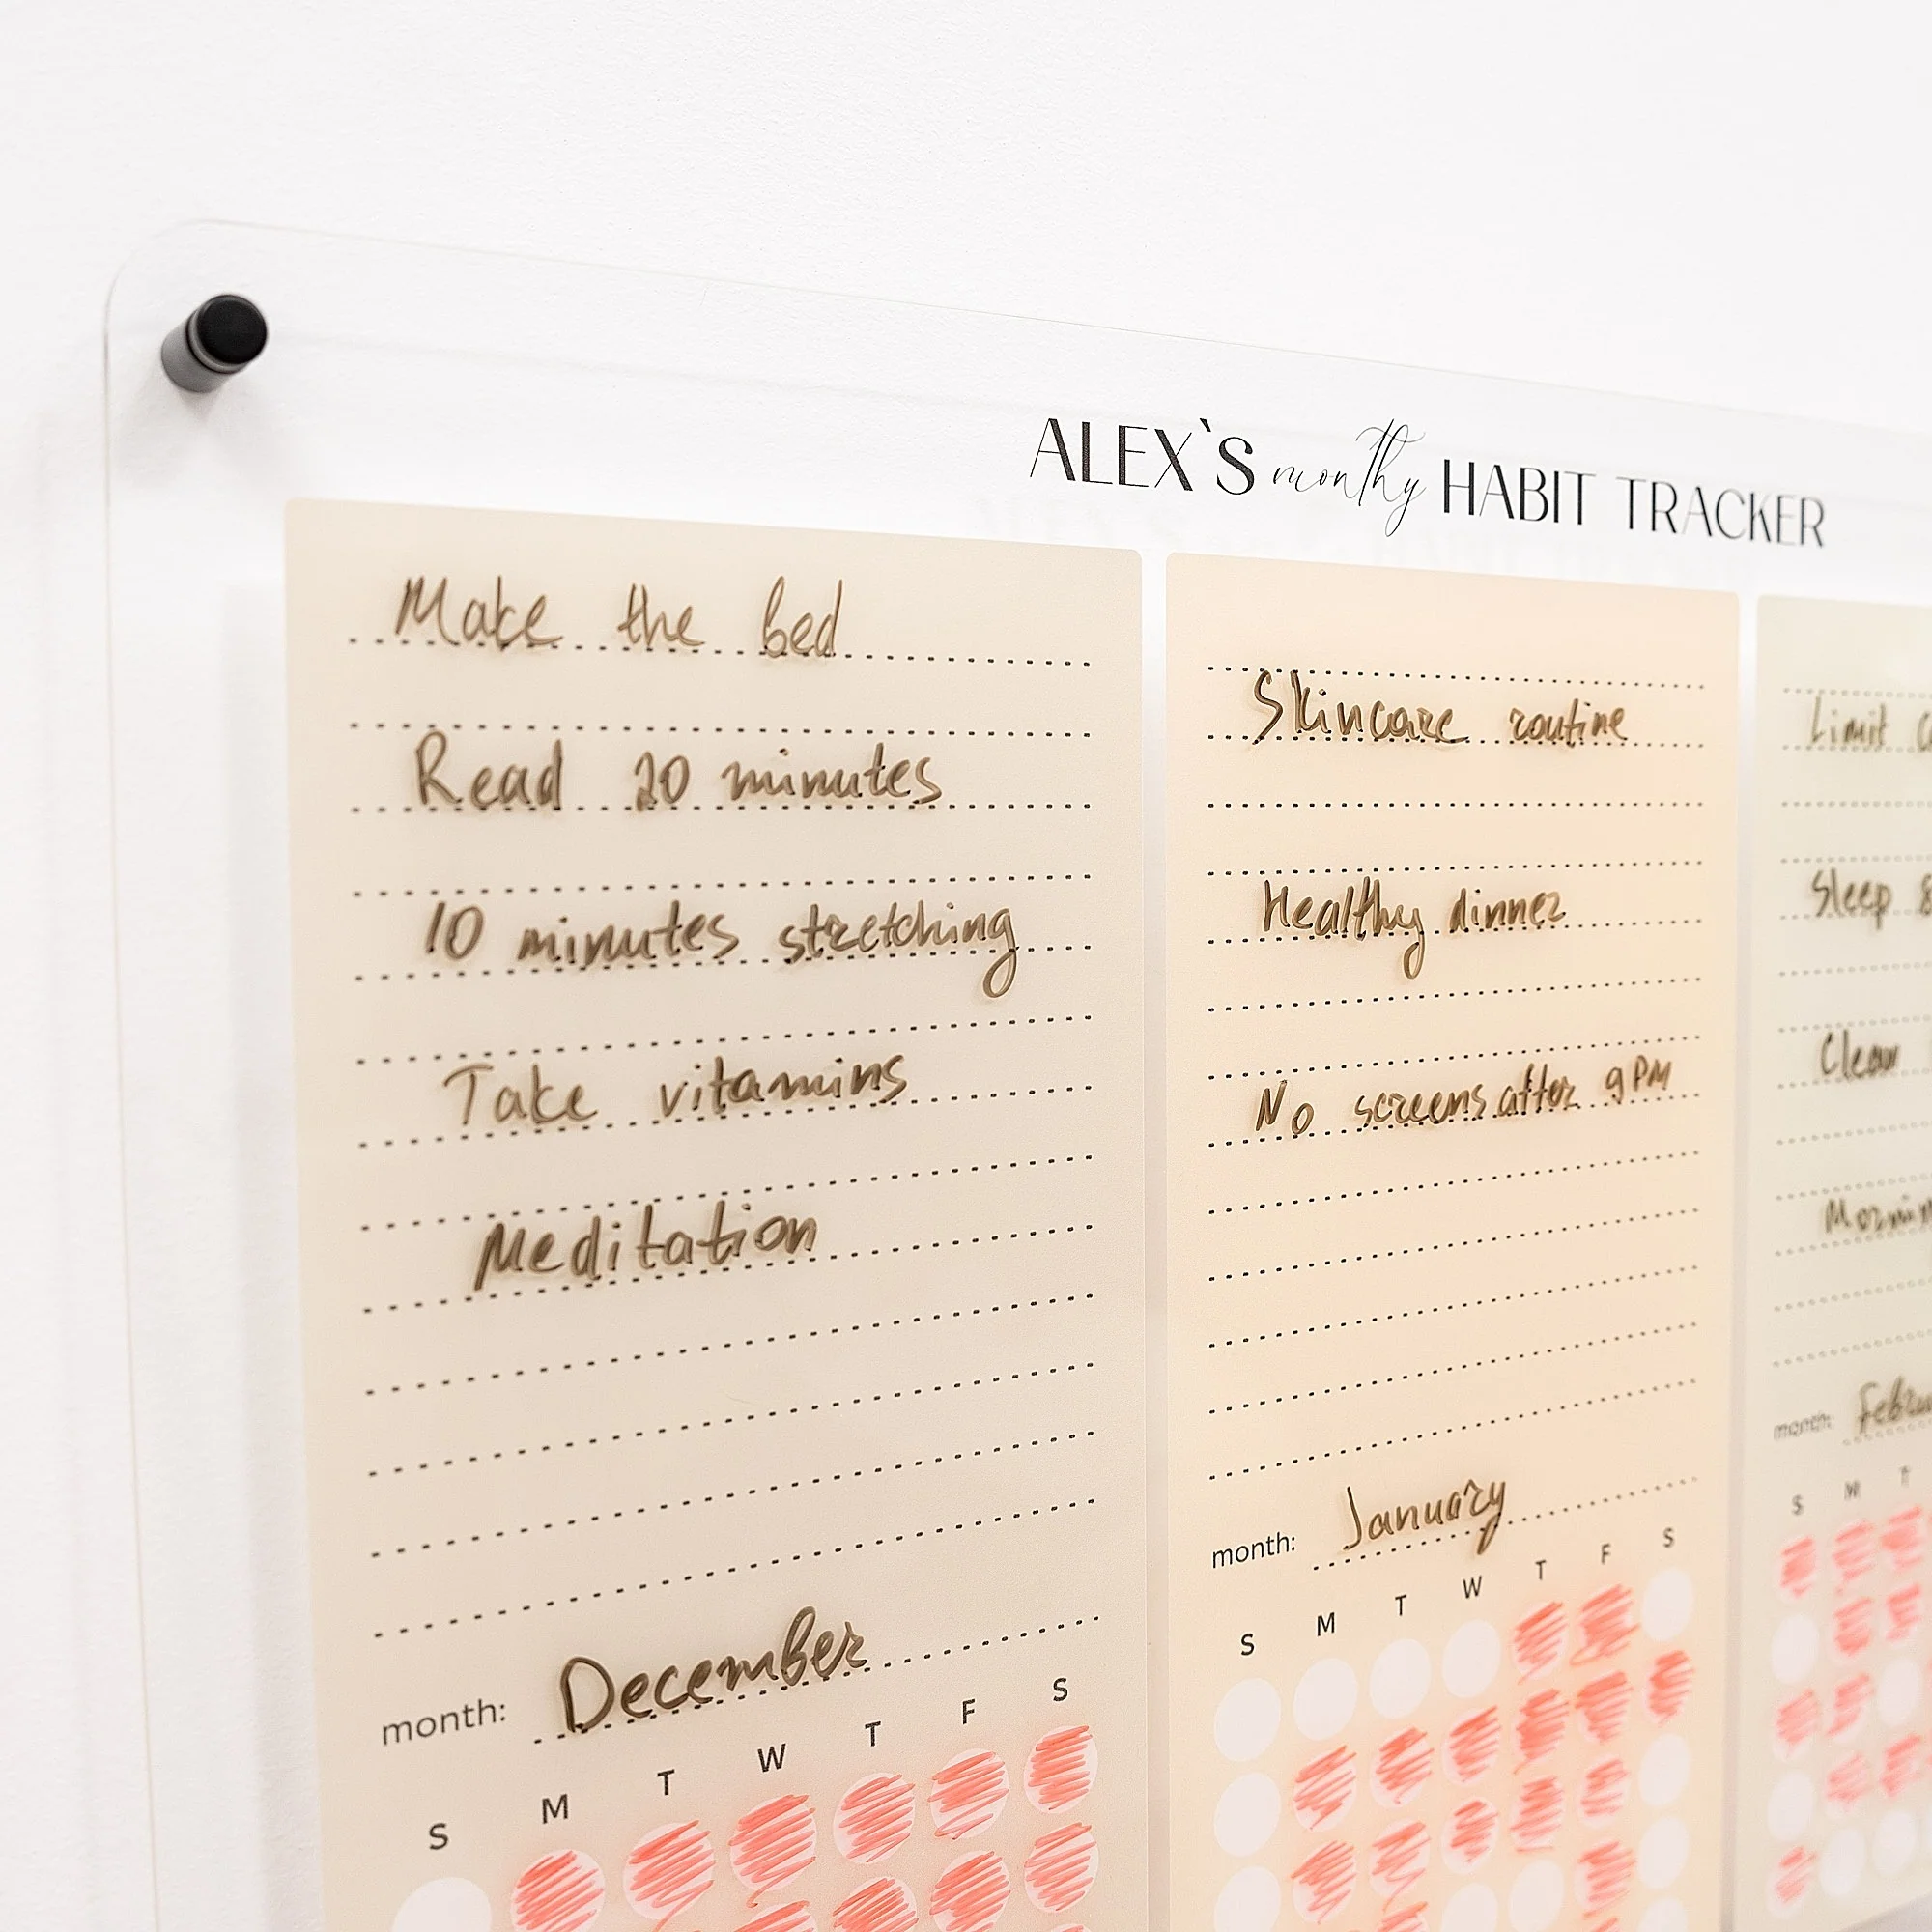 ALEX`S monthy HABIT TRACKER
Make the bed
Read 20 minutes
10 minutes stretching
Take vitamins
Meditation
month: December
S M T W T F S
Skincare routine
Healthy dinner
No screens after 9 PM
month: January
S M T W T F S
Limit
Sleep 8
Clean
month:
S M T